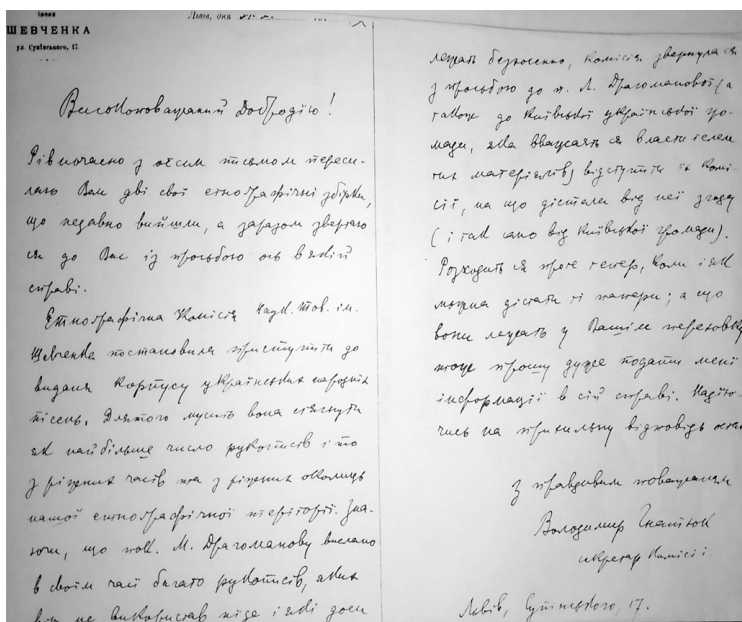 імени
ШЕВЧЕНКА
ул. Супінського, 17.
Львів, дня
Високоповажаний Добродію!
Рівночасно з отсим письмом переси-
лаю Вам дві свої етнографічні збірки,
що недавно вийшли, а заразом звертаю
ся до Вас із просьбою ось в якій
справі.
Етнографічна Комісія Наук. Тов. ім.
Шевченка постановила приступити до
виданя корпусу українських народніх
пісень. Для того мусить вона стягнути
як найбільше число рукописів і то
з ріжних часів та з ріжних околиць
нашої етнографічної території. Зна-
ючи, що пок. М. Драгоманову вислано
в своїм часі багато рукописів, яких
він не використав ніде і які доси
лежать безхосенно, Комісія звернула ся
з просьбою до п. Л. Драгоманової (а
також до Київської української гро-
мади, яка вважаєть ся властителем
тих матеріялів) відступити їх Комі-
сії, на що дістала від неї згоду
(і так само від Київської громади).
Розходить ся проте тепер, коли і як
можна дістати ті папери; а що
вони лежать у Вашім переховку
тож прошу дуже подати мені
інформації в сій справі. Надію-
чись на прихильну відповідь
З правдивим поважанням
Володимир Гнатюк
секретар Комісії.
Львів, Супінського, 17.